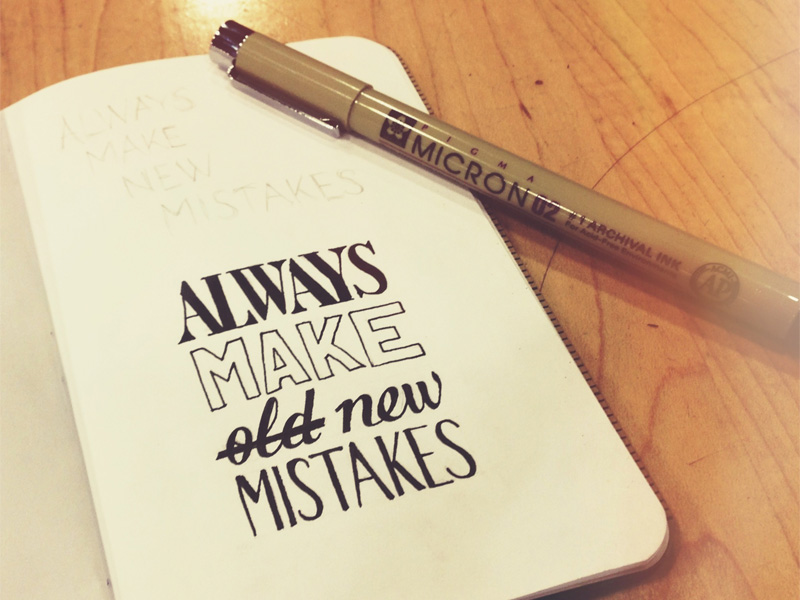 ALWAYS
MAKE
NEW
MISTAKES
PIGMA
MICRON 02
#1 ARCHIVAL INK
ALWAYS
MAKE
old new
MISTAKES